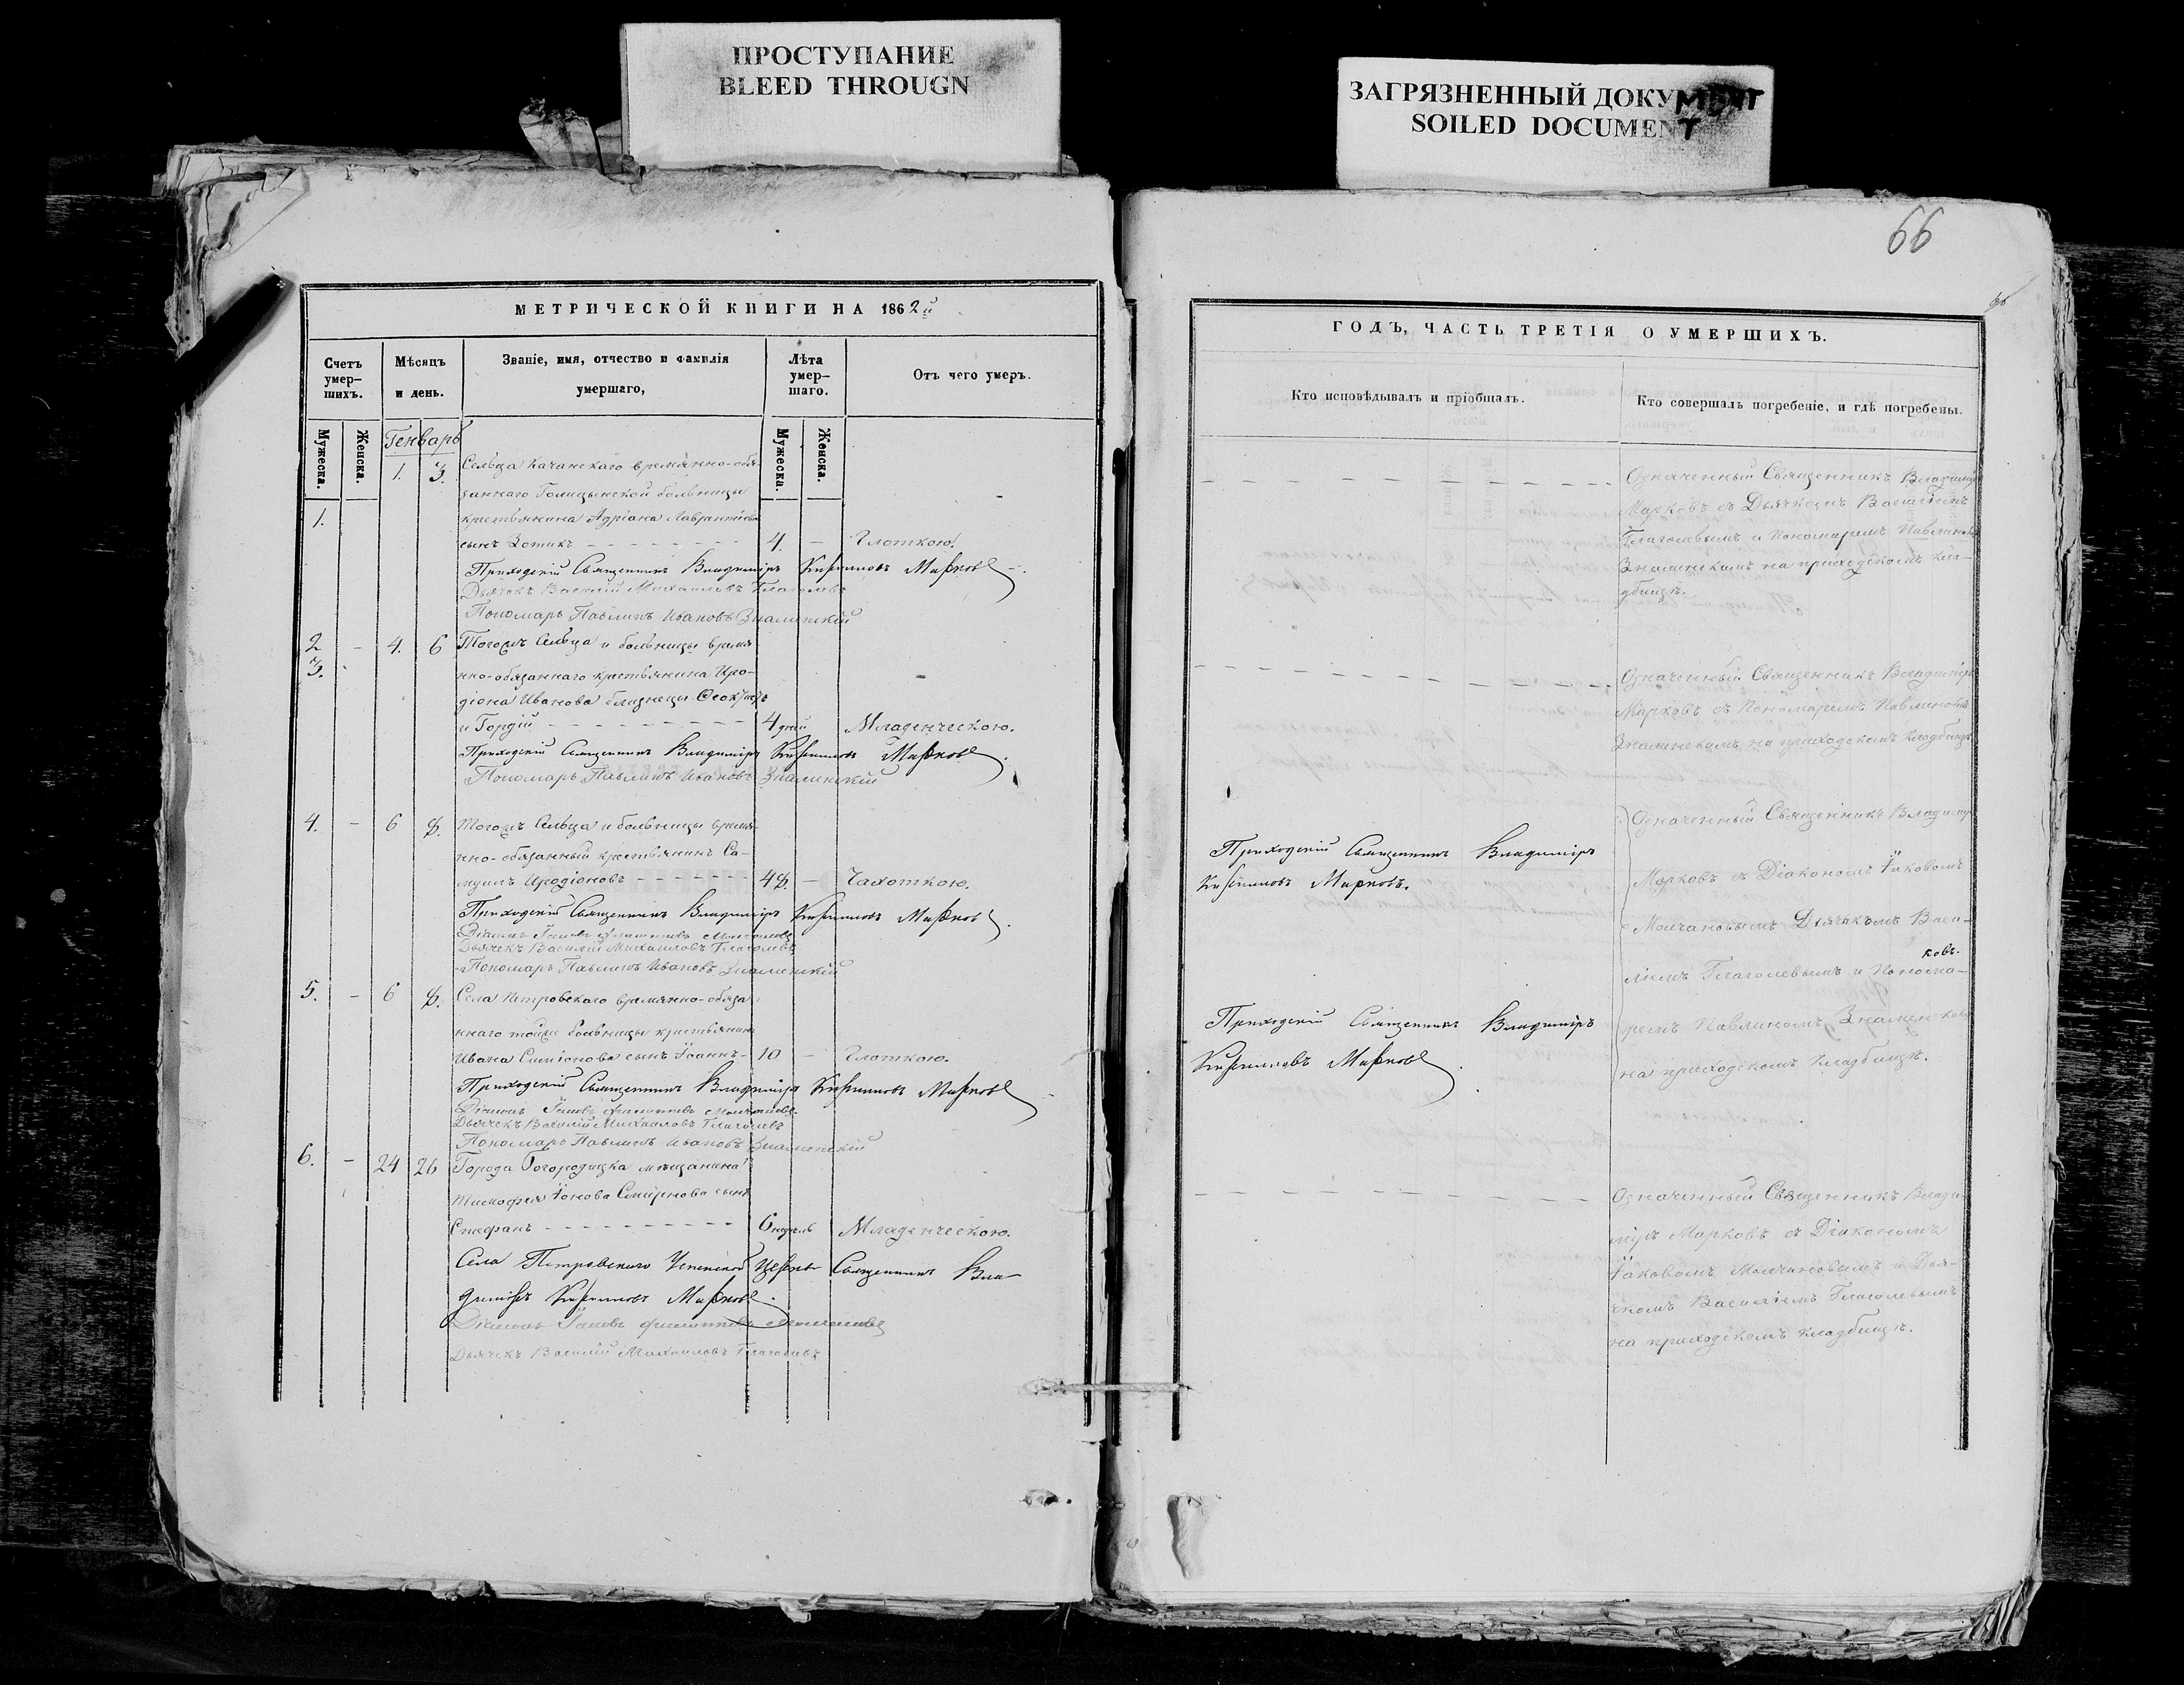 ПРОСТУПАНИЕ
BLEED THROUGN
ЗАГРЯЗНЕННЫЙ ДОКУМЕНТ
SOILED DOCUMENT
66
МЕТРИЧЕСКОЙ КНИГИ НА 1862й
Счетъ умер-
шихъ.
Мѣсяцъ
и день.
Званіе, имя, отчество и фамилія
умершаго,
Лѣта
умер-
шаго.
Отъ чего умеръ.
Мужеска.
Женска.
Генварь
Мужеска.
Женска.
1. 3. Сельца Качанскаго временно-обя-
заннаго Голицынской больницы
1. крестьянина Адріана Лаврентьева
сынъ Зотикъ 4. – Глоткою.
Приходскій Священникъ Владиміръ Кирилловъ Марковъ.
Дьячекъ Василій Михаиловъ Глаголевъ
Пономарь Павлинъ Ивановъ Знаменскій
2 – 4. 6 Тогожъ Сельца и больницы време-
3. нно-обязаннаго крестьянина Иро-
діона Иванова близнецы
и Гордій 4 дней Младенческою.
Приходскій Священникъ Владиміръ Кирилловъ Марковъ.
Пономарь Павлинъ Ивановъ Знаменскій
4. – 6 8. Тогожъ Сельца и больницы време-
нно-обязанный крестьянинъ Са-
муилъ Иродіоновъ 48. – Чахоткою.
Приходскій Священникъ Владиміръ Кирилловъ Марковъ.
Діаконъ Іаковъ Молчановъ
Дьячекъ Василій Михаиловъ Глаголевъ
Пономарь Павлинъ Ивановъ Знаменскій
5. – 6 8. Села Петровскаго временно-обяза-
ннаго тойже больницы крестьянина
Ивана Симіонова сынъ Іоаннъ 10 – Глоткою.
Приходскій Священникъ Владиміръ Кирилловъ Марковъ
Діаконъ Іаковъ Молчановъ
Дьячекъ Василій Михаиловъ Глаголевъ
Пономарь Павлинъ Ивановъ Знаменскій
6. – 24 26 Города Богородицка мѣщанина
Тимофея Іонова Смирнова сынъ
Стефанъ 6 недѣль Младенческою.
Села Петровскаго Успенской Церкви Священникъ Вла-
диміръ Кирилловъ Марковъ.
Діаконъ Іаковъ Молчановъ
Дьячекъ Василій Михаиловъ Глаголевъ
ГОДЪ, ЧАСТЬ ТРЕТІЯ О УМЕРШИХЪ.
Кто исповѣдывалъ и пріобщалъ.
Кто совершалъ погребеніе, и гдѣ погребены.
Означенный Священникъ Владиміръ
Марковъ съ Дьячкомъ Василіемъ
Глаголевымъ и Пономаремъ Павлиномъ
Знаменскимъ на приходскомъ кла-
дбищѣ.
Означенный Священникъ Владиміръ
Марковъ съ Пономаремъ Павлиномъ
Знаменскимъ на приходскомъ кладбищѣ
Приходскій Священникъ Владиміръ
Кирилловъ Марковъ.
Приходскій Священникъ Владиміръ
Кирилловъ Марковъ.
Означенный Священникъ Владиміръ
Марковъ съ Діакономъ Іаковомъ
Молчановымъ Дьячкомъ Васи-
ліемъ Глаголевымъ и Понома-
ремъ Павлиномъ Знаменскимъ
на приходскомъ кладбищѣ.
Означенный Священникъ Влади-
міръ Марковъ съ Діакономъ
Іаковомъ Молчановымъ и Дья-
чкомъ Василіемъ Глаголевымъ
на приходскомъ кладбищѣ.